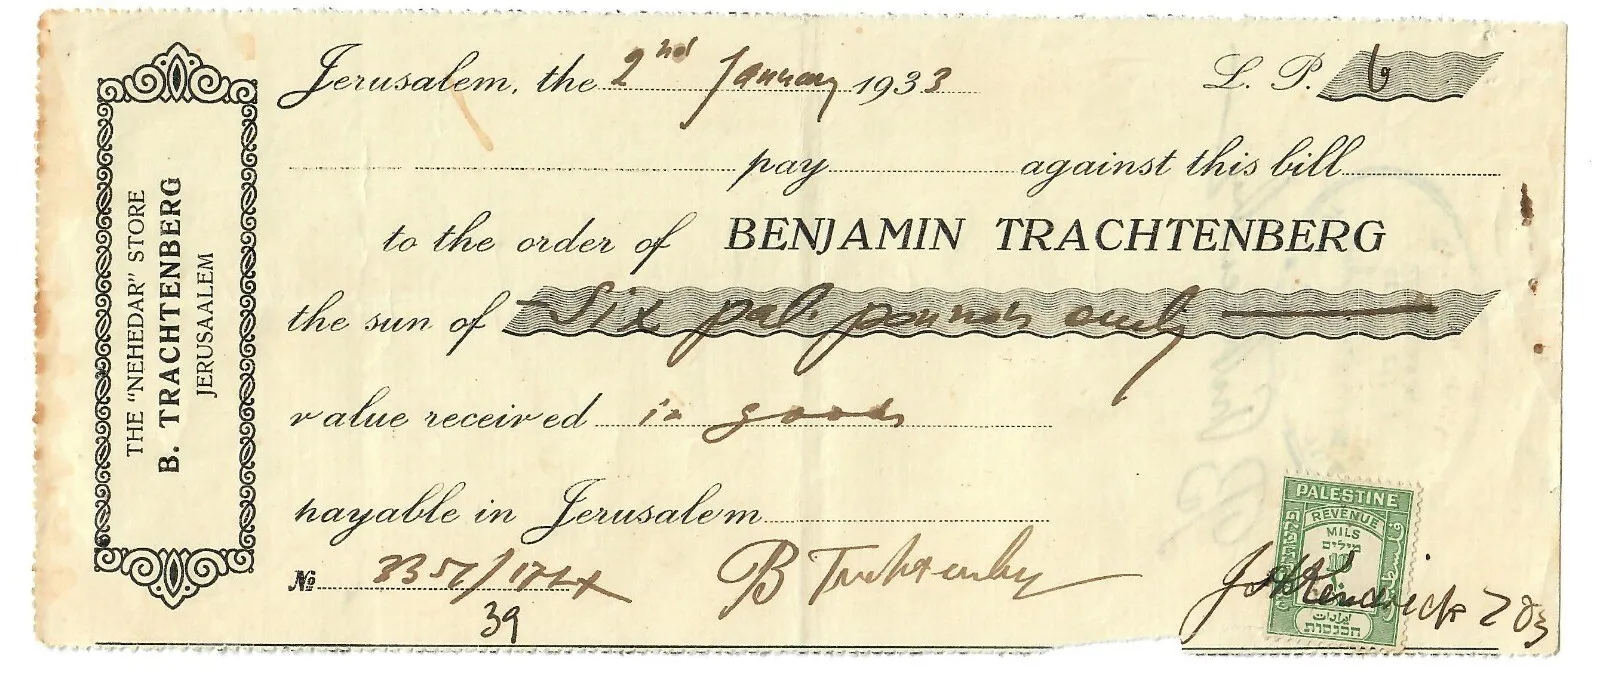 THE "NEHEDAR" STORE
B. TRACHTENBERG
JERUSAALEM
Jerusalem, the 2nd January 1933 L. P. 6
pay against this bill
to the order of BENJAMIN TRACHTENBERG
the sun of Six pal. pounds only
value received in goods
payable in Jerusalem
No 39
B Trachtenberg
J Kendrick 203
PALESTINE
REVENUE
MILS
מילים
10
הכנסות